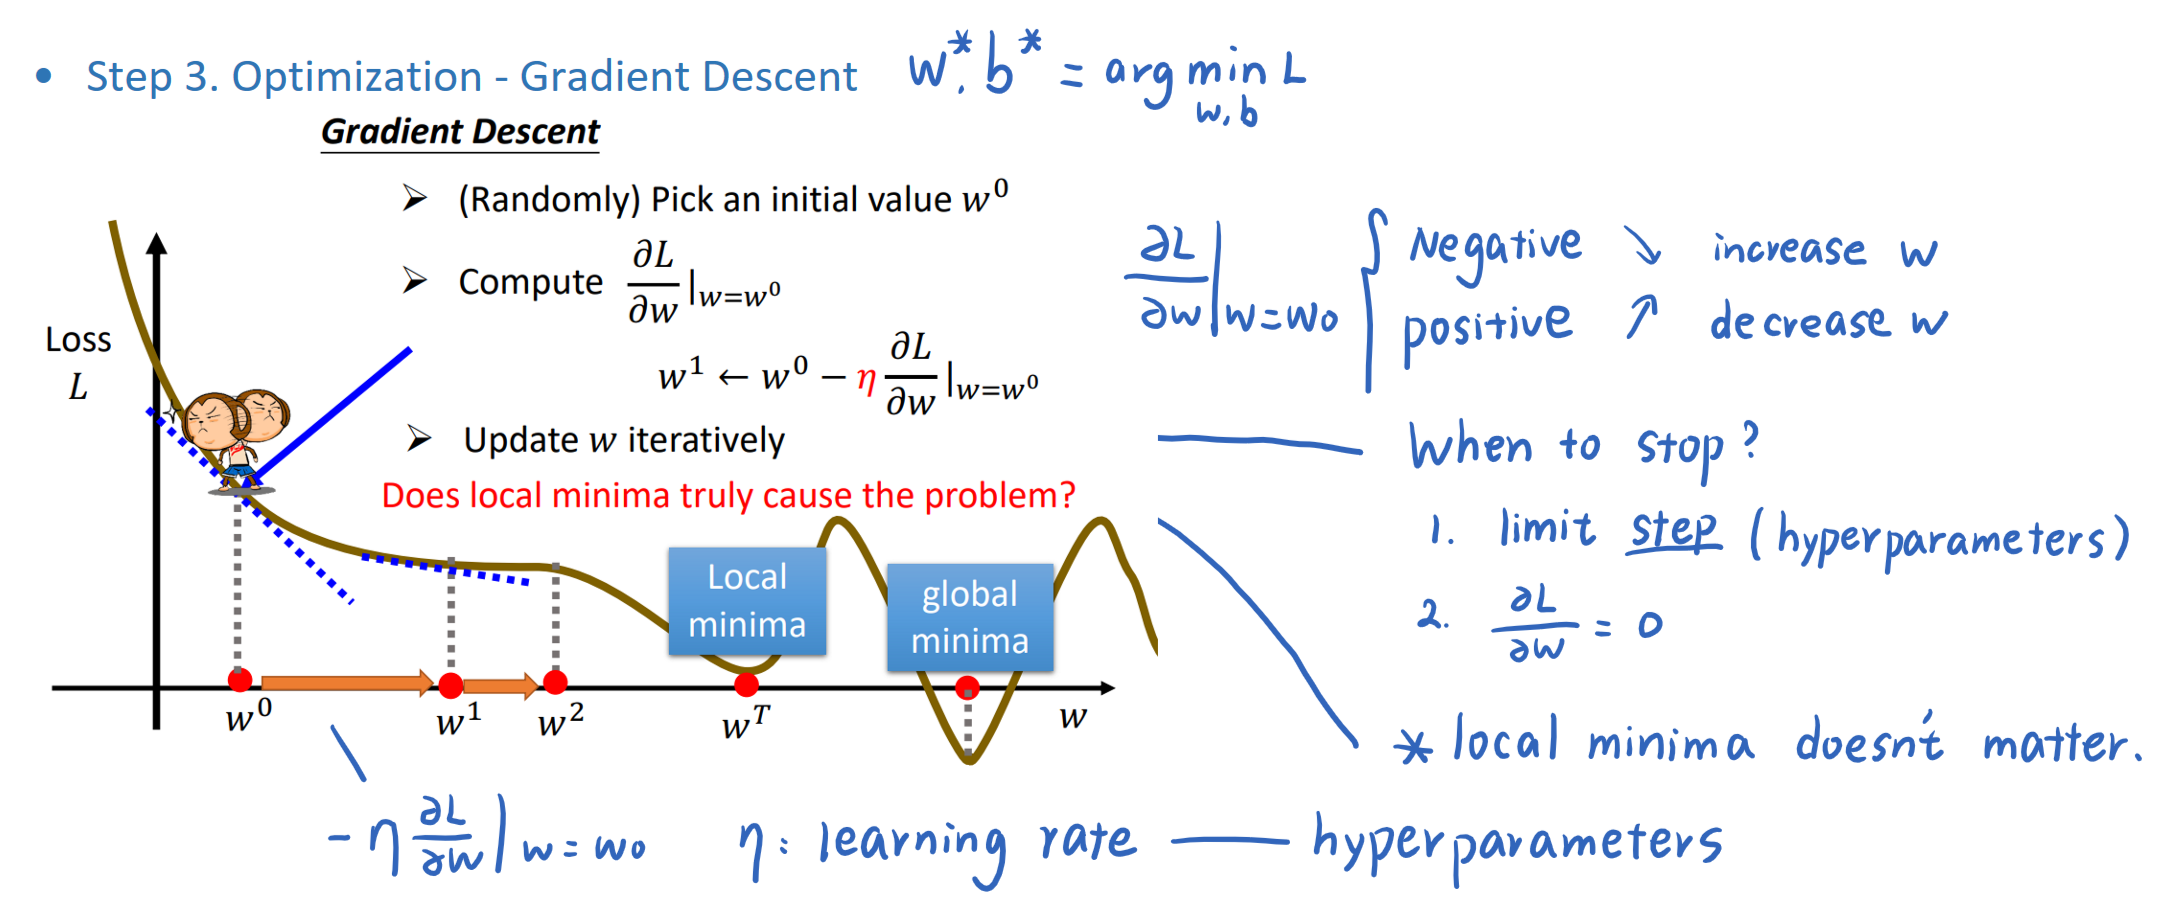 • Step 3. Optimization - Gradient Descent w*, b* = arg min L
w, b
Gradient Descent
➢ (Randomly) Pick an initial value w⁰
➢ Compute ∂L/∂w |w=w⁰
w¹ ← w⁰ − η ∂L/∂w |w=w⁰
➢ Update w iteratively
Does local minima truly cause the problem?
Loss
L
Local
minima
global
minima
w⁰ w¹ w² wᵀ w
∂L/∂w |w=w₀ { Negative ↘ increase w
positive ↗ decrease w
When to stop?
1. limit step (hyperparameters)
2. ∂L/∂w = 0
* local minima doesn't matter.
-η ∂L/∂w |w=w₀ η: learning rate — hyperparameters